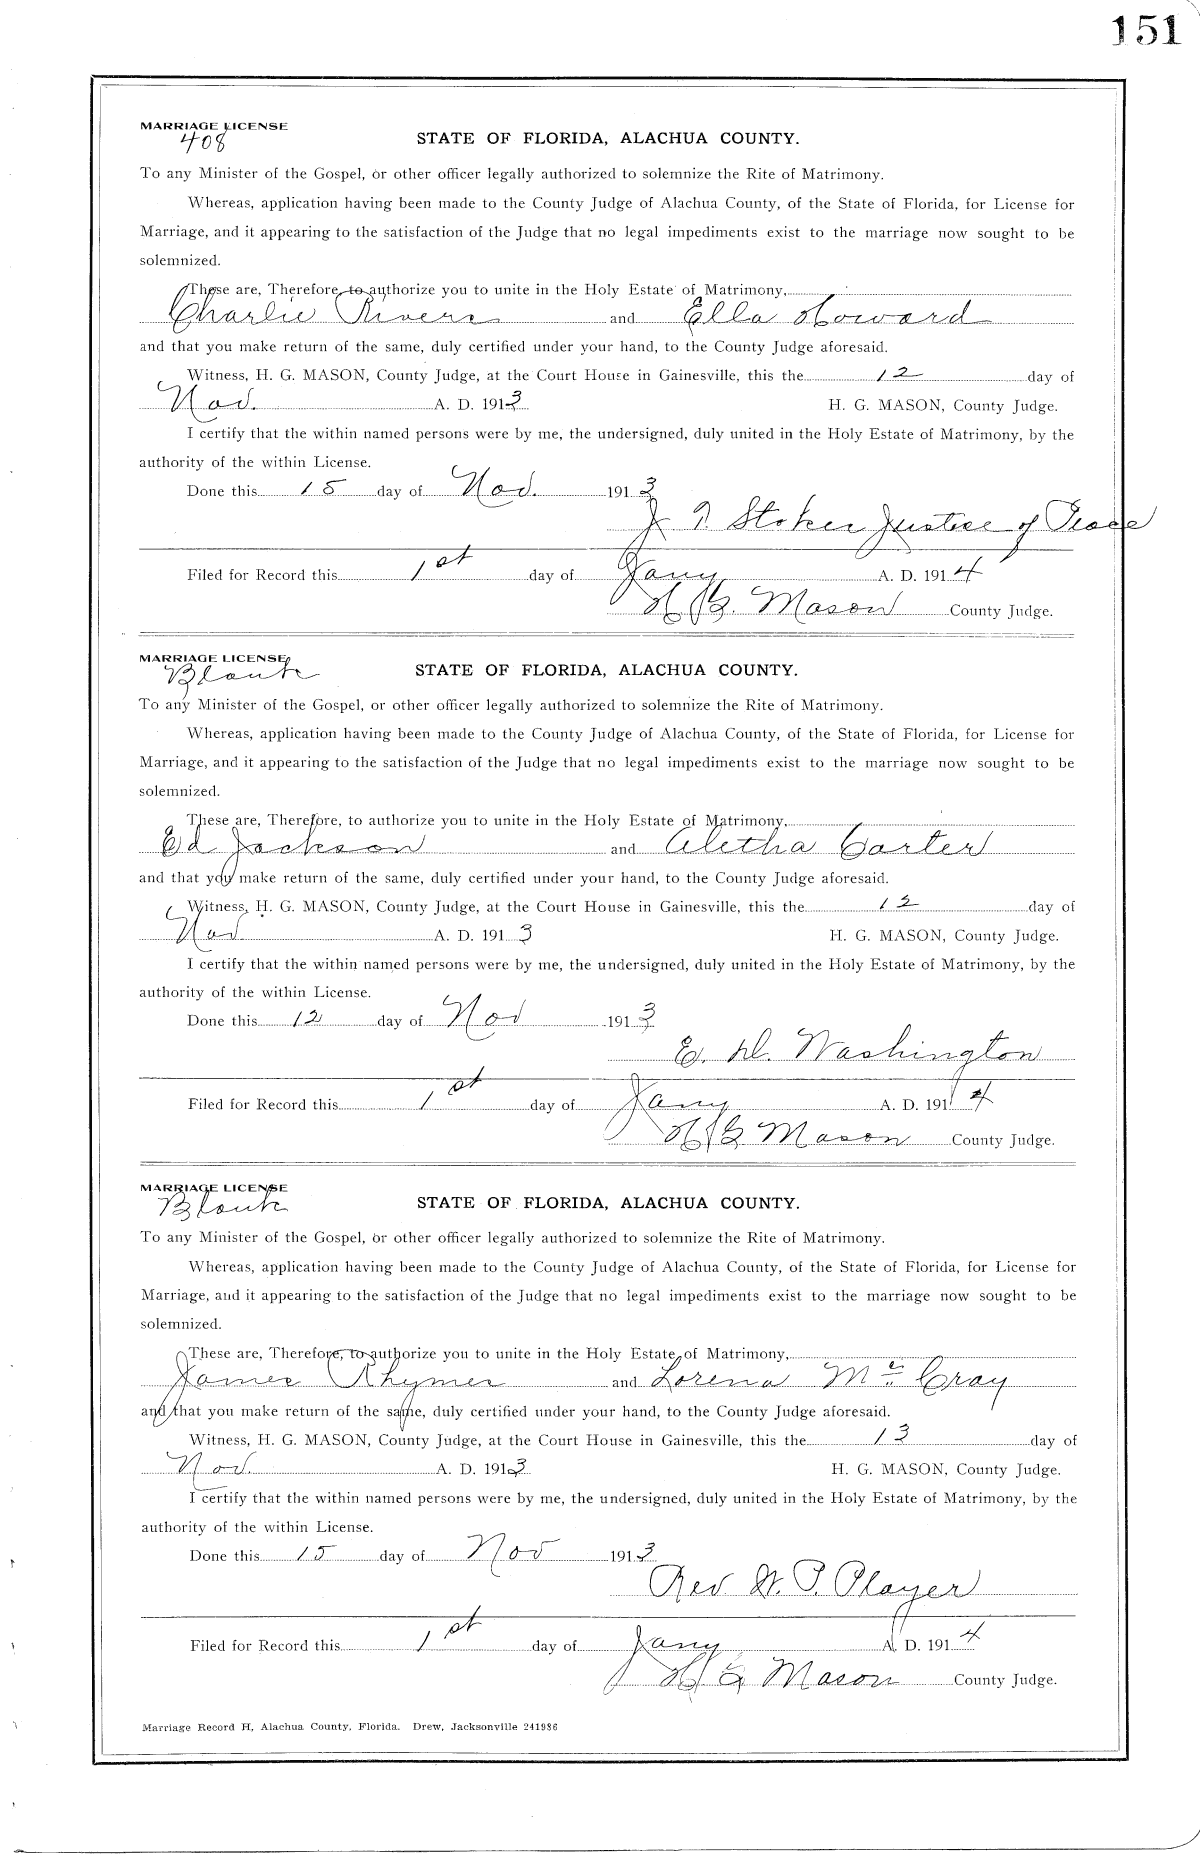 151
MARRIAGE LICENSE
408
STATE OF FLORIDA, ALACHUA COUNTY.
To any Minister of the Gospel, or other officer legally authorized to solemnize the Rite of Matrimony.
Whereas, application having been made to the County Judge of Alachua County, of the State of Florida, for License for
Marriage, and it appearing to the satisfaction of the Judge that no legal impediments exist to the marriage now sought to be
solemnized.
These are, Therefore, to authorize you to unite in the Holy Estate of Matrimony,
Charlie Rivers and Ella Howard
and that you make return of the same, duly certified under your hand, to the County Judge aforesaid.
Witness, H. G. MASON, County Judge, at the Court House in Gainesville, this the 12 day of
Nov. A. D. 1913 H. G. MASON, County Judge.
I certify that the within named persons were by me, the undersigned, duly united in the Holy Estate of Matrimony, by the
authority of the within License.
Done this 15 day of Nov. 1913
J. T. Stokes Justice of Peace
Filed for Record this 1st day of Jany A. D. 1914
H. G. Mason County Judge.
MARRIAGE LICENSE
Blank
STATE OF FLORIDA, ALACHUA COUNTY.
To any Minister of the Gospel, or other officer legally authorized to solemnize the Rite of Matrimony.
Whereas, application having been made to the County Judge of Alachua County, of the State of Florida, for License for
Marriage, and it appearing to the satisfaction of the Judge that no legal impediments exist to the marriage now sought to be
solemnized.
These are, Therefore, to authorize you to unite in the Holy Estate of Matrimony,
Ed Jackson and Aletha Carter
and that you make return of the same, duly certified under your hand, to the County Judge aforesaid.
Witness, H. G. MASON, County Judge, at the Court House in Gainesville, this the 12 day of
Nov A. D. 1913 H. G. MASON, County Judge.
I certify that the within named persons were by me, the undersigned, duly united in the Holy Estate of Matrimony, by the
authority of the within License.
Done this 12 day of Nov 1913
E. D. Washington
Filed for Record this 1st day of Jany A. D. 1914
H G Mason County Judge.
MARRIAGE LICENSE
Blank
STATE OF FLORIDA, ALACHUA COUNTY.
To any Minister of the Gospel, or other officer legally authorized to solemnize the Rite of Matrimony.
Whereas, application having been made to the County Judge of Alachua County, of the State of Florida, for License for
Marriage, and it appearing to the satisfaction of the Judge that no legal impediments exist to the marriage now sought to be
solemnized.
These are, Therefore, to authorize you to unite in the Holy Estate of Matrimony,
James Rhymes and Lorena McCray
and that you make return of the same, duly certified under your hand, to the County Judge aforesaid.
Witness, H. G. MASON, County Judge, at the Court House in Gainesville, this the 13 day of
Nov. A. D. 1913 H. G. MASON, County Judge.
I certify that the within named persons were by me, the undersigned, duly united in the Holy Estate of Matrimony, by the
authority of the within License.
Done this 15 day of Nov 1913
Rev W. P. Player
Filed for Record this 1st day of Jany A. D. 1914
H G Mason County Judge.
Marriage Record H, Alachua County, Florida. Drew, Jacksonville 241986